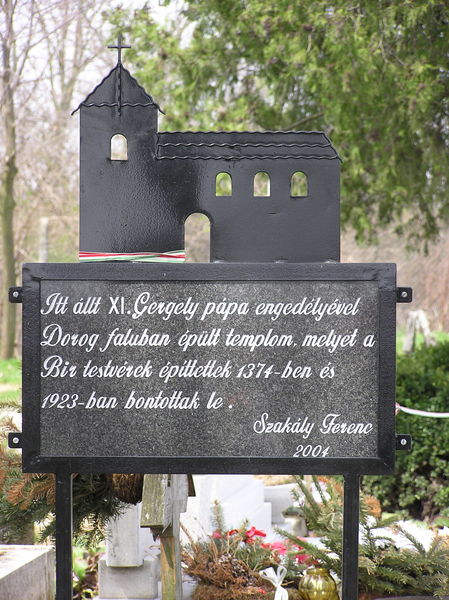 Itt állt XI. Gergely pápa engedélyével
Dorog faluban épült templom, melyet a
Bir testvérek építtettek 1374-ben és
1923-ban bontottak le.
Szakály Ferenc
2004